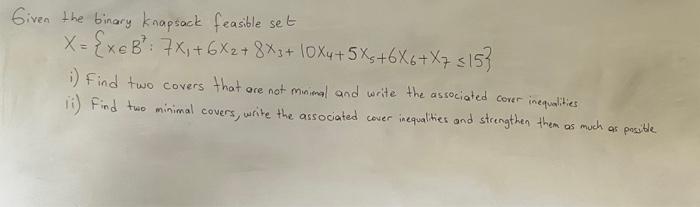 Given the binary knapsack feasible set
X = {x ∈ B⁷ : 7X₁ + 6X₂ + 8X₃ + 10X₄ + 5X₅ + 6X₆ + X₇ ≤ 15}
i) Find two covers that are not minimal and write the associated cover inequalities
ii) Find two minimal covers, write the associated cover inequalities and strengthen them as much as possible